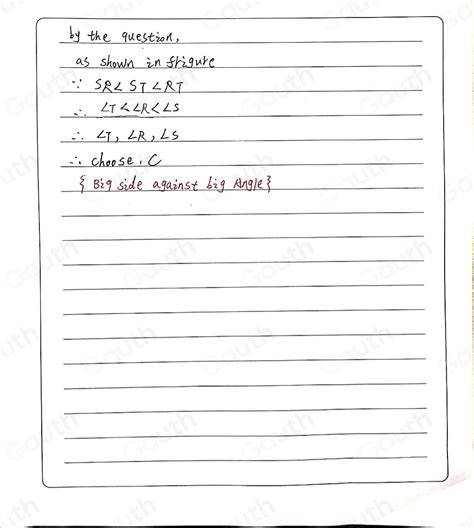 by the question,
as shown in frigure
∵ SR < ST < RT
∴ ∠T < ∠R < ∠S
∴ ∠T, ∠R, ∠S
∴ choose, C
{ Big side against big Angle }
Gauth